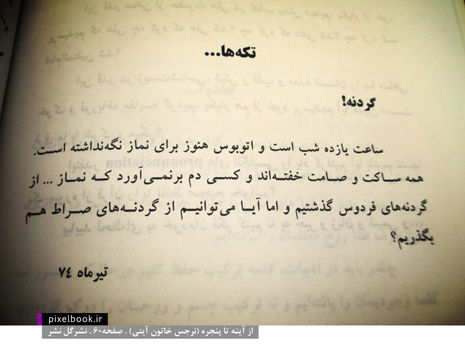 تکه‌ها...
گردنه!
ساعت یازده شب است و اتوبوس هنوز برای نماز نگه‌نداشته است.
همه ساکت و صامت خفته‌اند و کسی دم برنمی‌آورد که نماز ... از
گردنه‌های فردوس گذشتیم و اما آیا می‌توانیم از گردنه‌های صراط هم
بگذریم؟
تیرماه ۷۴
pixelbook.ir
از آینه تا پنجره (نرجس خاتون آیتی) . صفحه۶۰ . نشرگل نشر